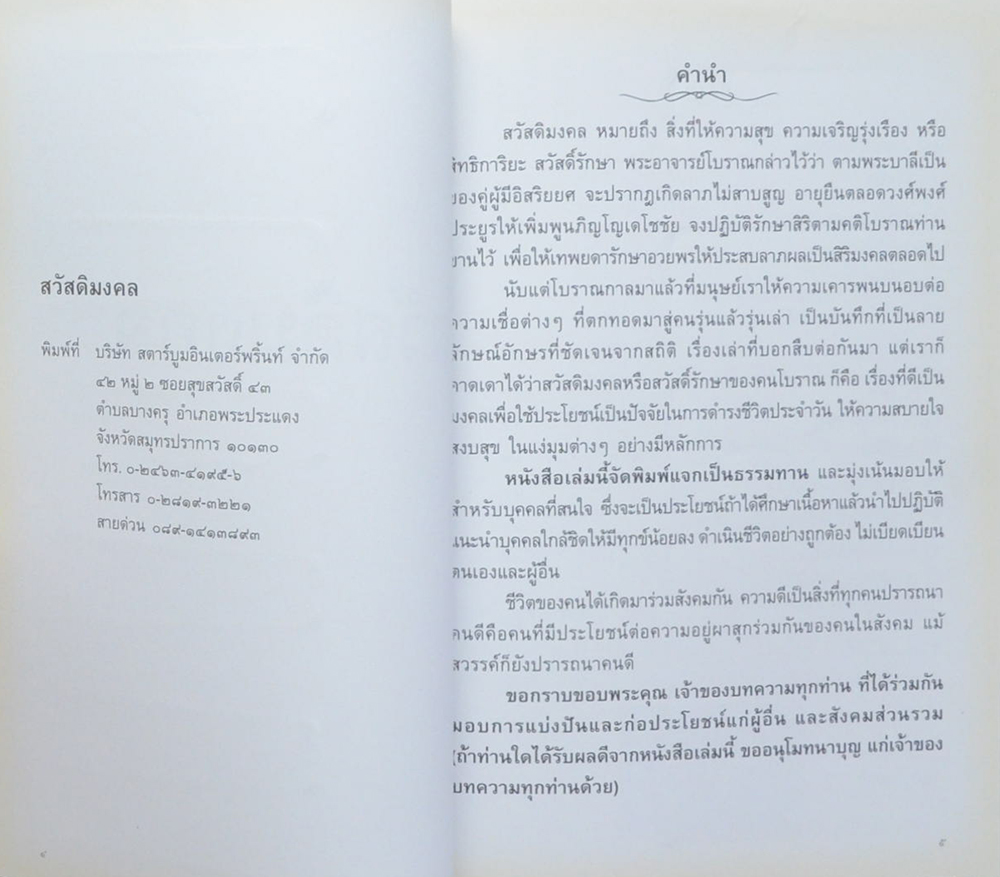 สวัสดิมงคล
พิมพ์ที่ บริษัท สตาร์บูมอินเตอร์พริ้นท์ จำกัด
๔๒ หมู่ ๒ ซอยสุขสวัสดิ์ ๔๓
ตำบลบางครุ อำเภอพระประแดง
จังหวัดสมุทรปราการ ๑๐๑๓๐
โทร. ๐-๒๔๖๓-๔๑๙๕-๖
โทรสาร ๐-๒๘๑๙-๓๒๒๑
สายด่วน ๐๘๙-๑๔๑๓๘๙๓
คำนำ
สวัสดิมงคล หมายถึง สิ่งที่ให้ความสุข ความเจริญรุ่งเรือง หรือ
สิทธิการิยะ สวัสดิ์รักษา พระอาจารย์โบราณกล่าวไว้ว่า ตามพระบาลีเป็น
ของคู่ผู้มีอิสริยยศ จะปรากฏเกิดลาภไม่สาบสูญ อายุยืนตลอดวงศ์พงศ์
ประยูรให้เพิ่มพูนภิญโญเดโชชัย จงปฏิบัติรักษาสิริตามคติโบราณท่าน
ขานไว้ เพื่อให้เทพยดารักษาอวยพรให้ประสบลาภผลเป็นสิริมงคลตลอดไป
นับแต่โบราณกาลมาแล้วที่มนุษย์เราให้ความเคารพนบนอบต่อ
ความเชื่อต่างๆ ที่ตกทอดมาสู่คนรุ่นแล้วรุ่นเล่า เป็นบันทึกที่เป็นลาย
ลักษณ์อักษรที่ชัดเจนจากสถิติ เรื่องเล่าที่บอกสืบต่อกันมา แต่เราก็
คาดเดาได้ว่าสวัสดิมงคลหรือสวัสดิ์รักษาของคนโบราณ ก็คือ เรื่องที่ดีเป็น
มงคลเพื่อใช้ประโยชน์เป็นปัจจัยในการดำรงชีวิตประจำวัน ให้ความสบายใจ
สงบสุข ในแง่มุมต่างๆ อย่างมีหลักการ
หนังสือเล่มนี้จัดพิมพ์แจกเป็นธรรมทาน และมุ่งเน้นมอบให้
สำหรับบุคคลที่สนใจ ซึ่งจะเป็นประโยชน์ถ้าได้ศึกษาเนื้อหาแล้วนำไปปฏิบัติ
แนะนำบุคคลใกล้ชิดให้มีทุกข์น้อยลง ดำเนินชีวิตอย่างถูกต้อง ไม่เบียดเบียน
ตนเองและผู้อื่น
ชีวิตของคนได้เกิดมาร่วมสังคมกัน ความดีเป็นสิ่งที่ทุกคนปรารถนา
คนดีคือคนที่มีประโยชน์ต่อความอยู่ผาสุกร่วมกันของคนในสังคม แม้
สวรรค์ก็ยังปรารถนาคนดี
ขอกราบขอบพระคุณ เจ้าของบทความทุกท่าน ที่ได้ร่วมกัน
มอบการแบ่งปันและก่อประโยชน์แก่ผู้อื่น และสังคมส่วนรวม
(ถ้าท่านใดได้รับผลดีจากหนังสือเล่มนี้ ขออนุโมทนาบุญ แก่เจ้าของ
บทความทุกท่านด้วย)